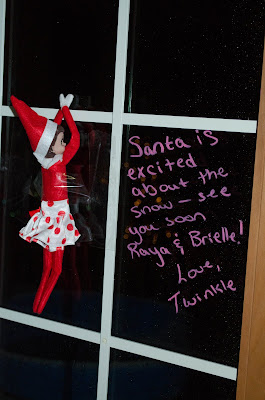 Santa is
excited
about the
snow – see
you soon
Kaya & Brielle!
Love,
Twinkle